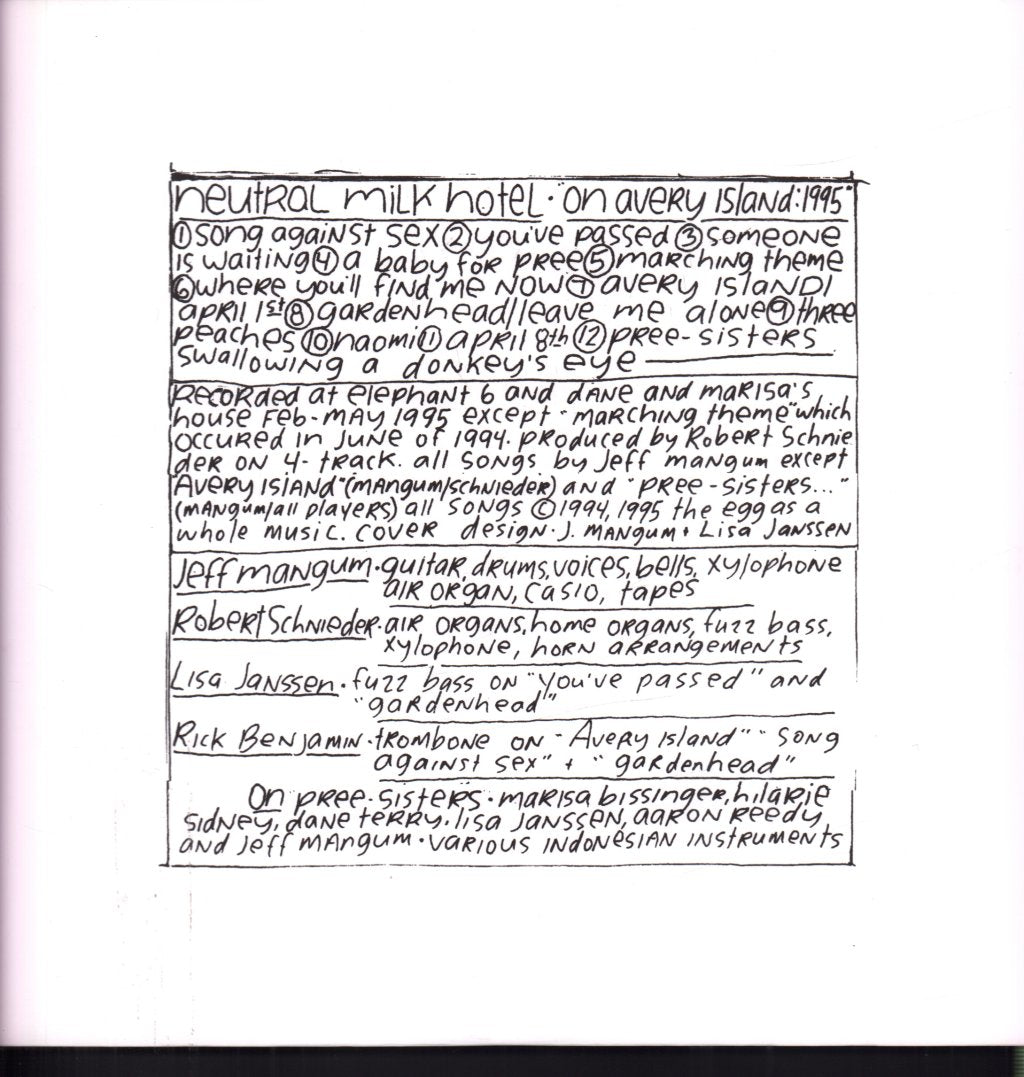 neutral milk hotel · "on avery island: 1995"
① song against sex ② you've passed ③ someone
is waiting ④ a baby for pree ⑤ marching theme
⑥ where you'll find me now ⑦ avery island/
april 1st ⑧ gardenhead/leave me alone ⑨ three
peaches ⑩ naomi ⑪ april 8th ⑫ pree-sisters
swallowing a donkey's eye
Recorded at elephant 6 and dane and marisa's
house feb-may 1995 except "marching theme" which
occured in june of 1994. produced by Robert Schnie
der on 4-track. all songs by jeff mangum except
"Avery Island" (mangum/schnieder) and "pree-sisters..."
(mangum/all players) all songs © 1994, 1995 the egg as a
whole music. cover design · J. mangum + Lisa Janssen
jeff mangum · guitar, drums, voices, bells, xylophone
air organ, casio, tapes
Robert Schnieder · air organs, home organs, fuzz bass,
xylophone, horn arrangements
Lisa Janssen · fuzz bass on "you've passed" and
"gardenhead"
Rick Benjamin · trombone on "Avery Island" "song
against sex" + "gardenhead"
On pree-sisters · marisa bissinger, hilarie
sidney, dane terry. lisa janssen, aaron reedy
and jeff mangum · various indonesian instruments